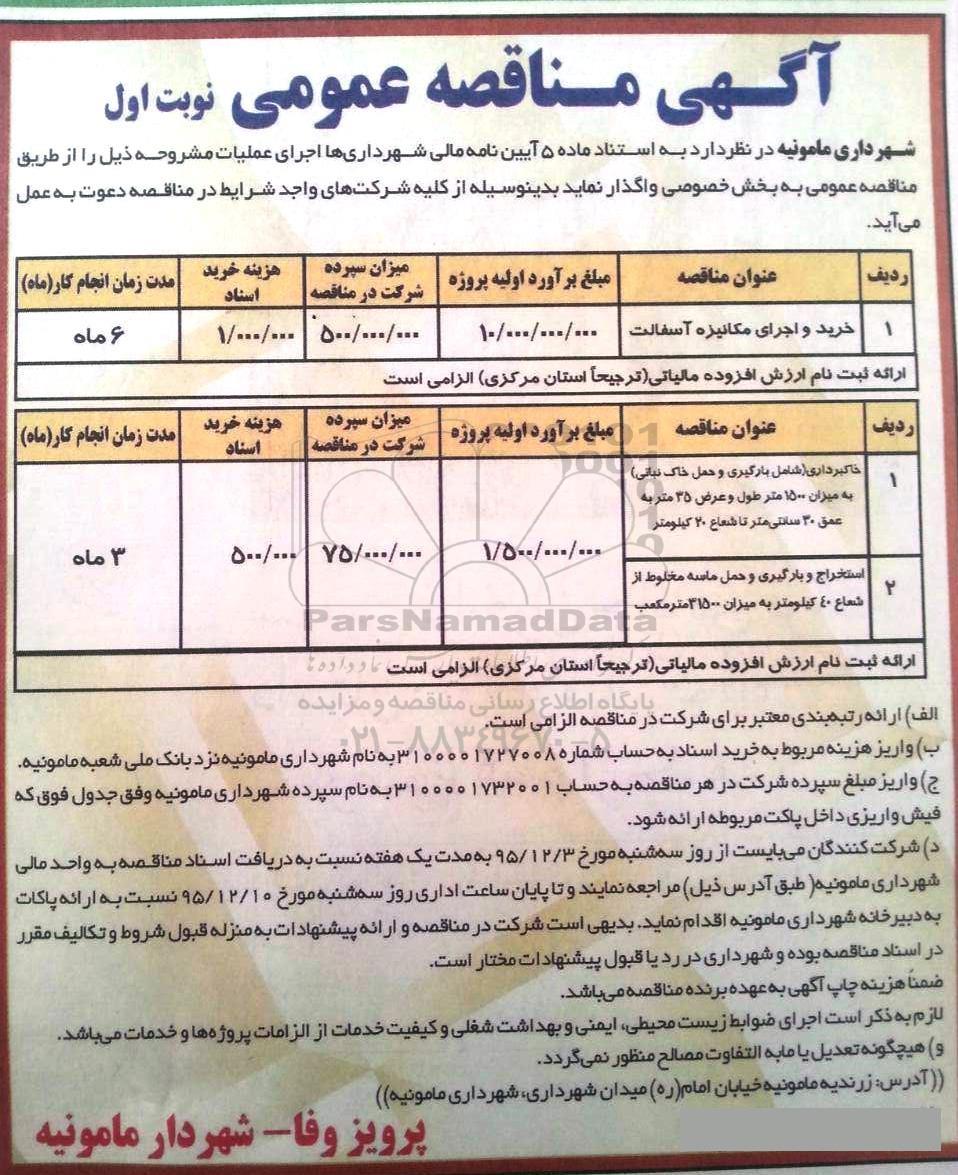 آگهی مناقصه عمومی نوبت اول
شهرداری مامونیه در نظر دارد به استناد ماده ۵ آیین نامه مالی شهرداری‌ها اجرای عملیات مشروحه ذیل را از طریق
مناقصه عمومی به بخش خصوصی واگذار نماید بدینوسیله از کلیه شرکت‌های واجد شرایط در مناقصه دعوت به عمل
می‌آید.
ردیف عنوان مناقصه مبلغ برآورد اولیه پروژه میزان سپرده شرکت در مناقصه هزینه خرید اسناد مدت زمان انجام کار(ماه)
۱ خرید و اجرای مکانیزه آسفالت ۱۰/۰۰۰/۰۰۰/۰۰۰ ۵۰۰/۰۰۰/۰۰۰ ۱/۰۰۰/۰۰۰ ۶ ماه
ارائه ثبت نام ارزش افزوده مالیاتی(ترجیحاً استان مرکزی) الزامی است
ردیف عنوان مناقصه مبلغ برآورد اولیه پروژه میزان سپرده شرکت در مناقصه هزینه خرید اسناد مدت زمان انجام کار(ماه)
۱ خاکبرداری(شامل بارگیری و حمل خاک نباتی)
به میزان ۱۵۰۰ متر طول و عرض ۳۵ متر به
عمق ۳۰ سانتی‌متر تا شعاع ۲۰ کیلومتر
۱/۵۰۰/۰۰۰/۰۰۰ ۷۵/۰۰۰/۰۰۰ ۵۰۰/۰۰۰ ۳ ماه
۲ استخراج و بارگیری و حمل ماسه مخلوط از
شعاع ۴۰ کیلومتر به میزان ۳۱۵۰۰مترمکعب
ارائه ثبت نام ارزش افزوده مالیاتی(ترجیحاً استان مرکزی) الزامی است
ParsNamadData
پایگاه اطلاع رسانی مناقصه و مزایده
۰۲۱-۸۸۳۴۹۶۷۰-۵
الف) ارائه رتبه‌بندی معتبر برای شرکت در مناقصه الزامی است.
ب) واریز هزینه مربوط به خرید اسناد به حساب شماره ۳۱۰۰۰۰۱۷۲۷۰۰۸ به نام شهرداری مامونیه نزد بانک ملی شعبه مامونیه.
ج) واریز مبلغ سپرده شرکت در هر مناقصه به حساب ۳۱۰۰۰۰۱۷۳۲۰۰۱ به نام سپرده شهرداری مامونیه وفق جدول فوق که
فیش واریزی داخل پاکت مربوطه ارائه شود.
د) شرکت کنندگان می‌بایست از روز سه‌شنبه مورخ ۹۵/۱۲/۳ به مدت یک هفته نسبت به دریافت اسناد مناقصه به واحد مالی
شهرداری مامونیه( طبق آدرس ذیل) مراجعه نمایند و تا پایان ساعت اداری روز سه‌شنبه مورخ ۹۵/۱۲/۱۰ نسبت به ارائه پاکات
به دبیرخانه شهرداری مامونیه اقدام نماید. بدیهی است شرکت در مناقصه و ارائه پیشنهادات به منزله قبول شروط و تکالیف مقرر
در اسناد مناقصه بوده و شهرداری در رد یا قبول پیشنهادات مختار است.
ضمناً هزینه چاپ آگهی به عهده برنده مناقصه می‌باشد.
لازم به ذکر است اجرای ضوابط زیست محیطی، ایمنی و بهداشت شغلی و کیفیت خدمات از الزامات پروژه‌ها و خدمات می‌باشد.
و) هیچگونه تعدیل یا مابه التفاوت مصالح منظور نمی‌گردد.
((آدرس: زرندیه مامونیه خیابان امام(ره) میدان شهرداری، شهرداری مامونیه))
پرویز وفا- شهردار مامونیه